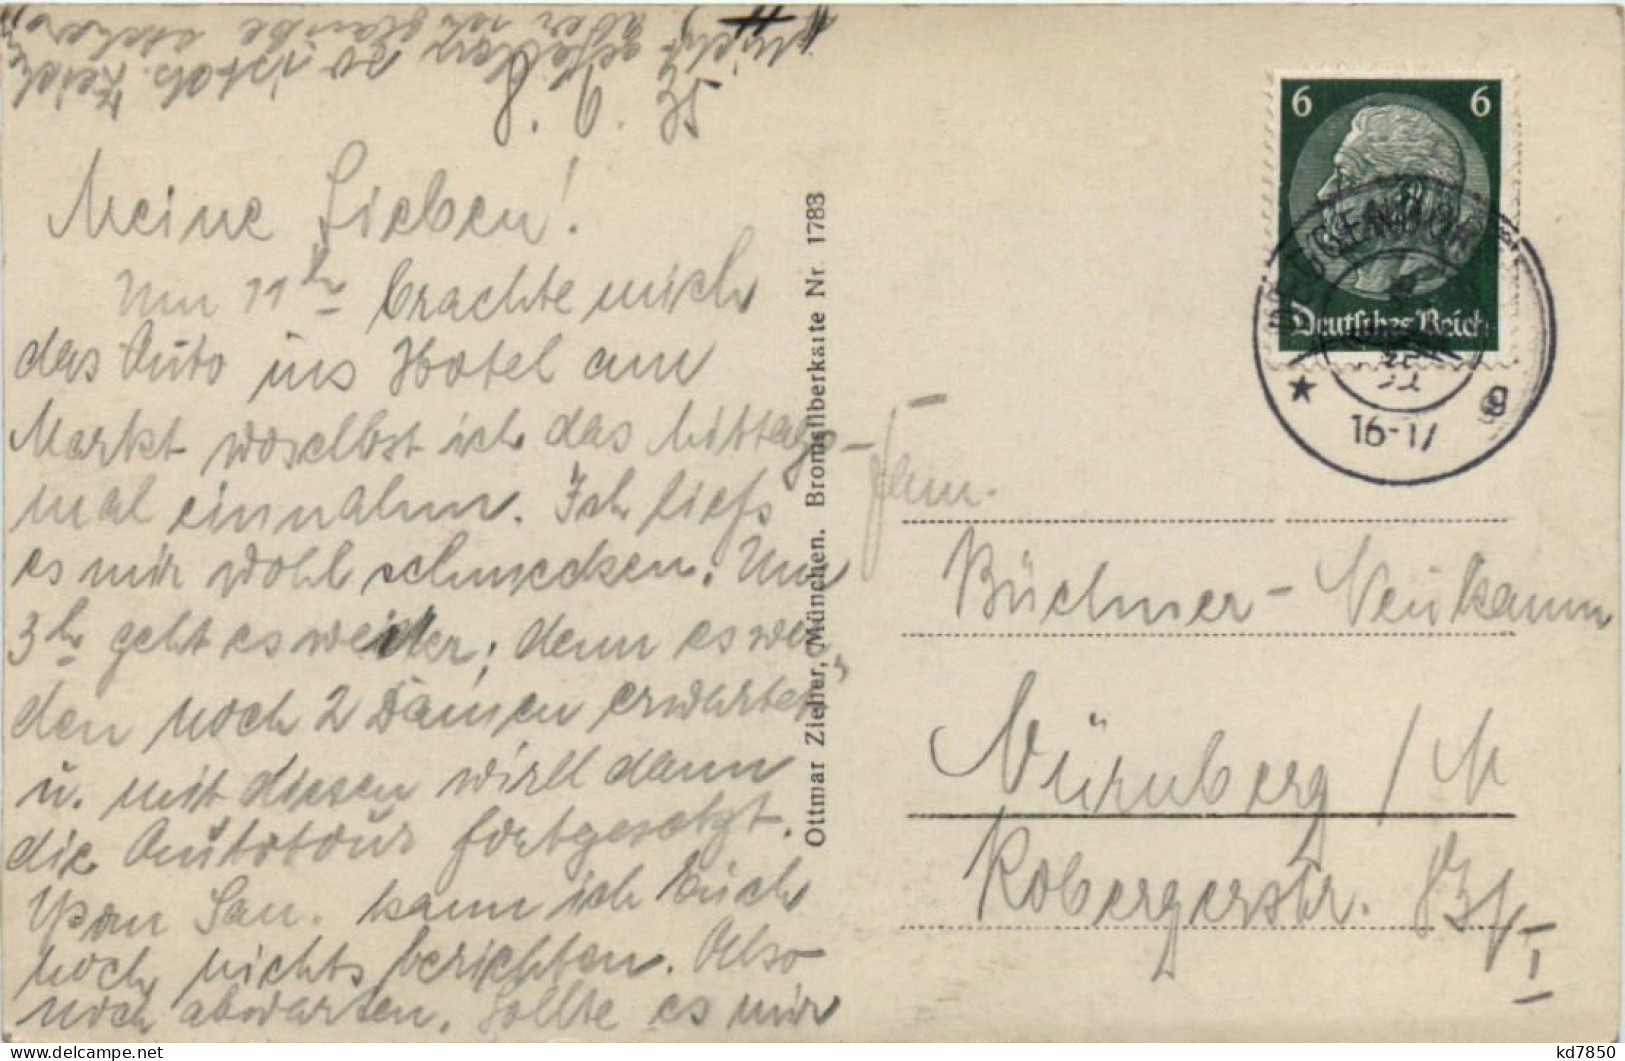 8. 9. 35
Meine Lieben!
Um 11 h brachte mich
das Auto ins Hotel am
Markt woselbst ich das Mittags-
mal einnahm. Ich liess
es mir wohl schmecken. Um
3 h geht es weiter; denn es wer-
den noch 2 Damen erwartet,
u. mit diesen wird dann
die Autotour fortgesetzt.
Vom San. kann ich Euch
noch nichts berichten. Also
noch abwarten. Sollte es mir
nicht gefallen, so ist ds. Zeichen
aber ich glaube sicher
#
Ottmar Zieher, München. Bromsilberkarte Nr. 1783
6 6
Deutsches Reich
16-17
Fam.
Büchner-Neukamm
Nürnberg / N
Kobergerstr.
I
kd7850
delcampe.net